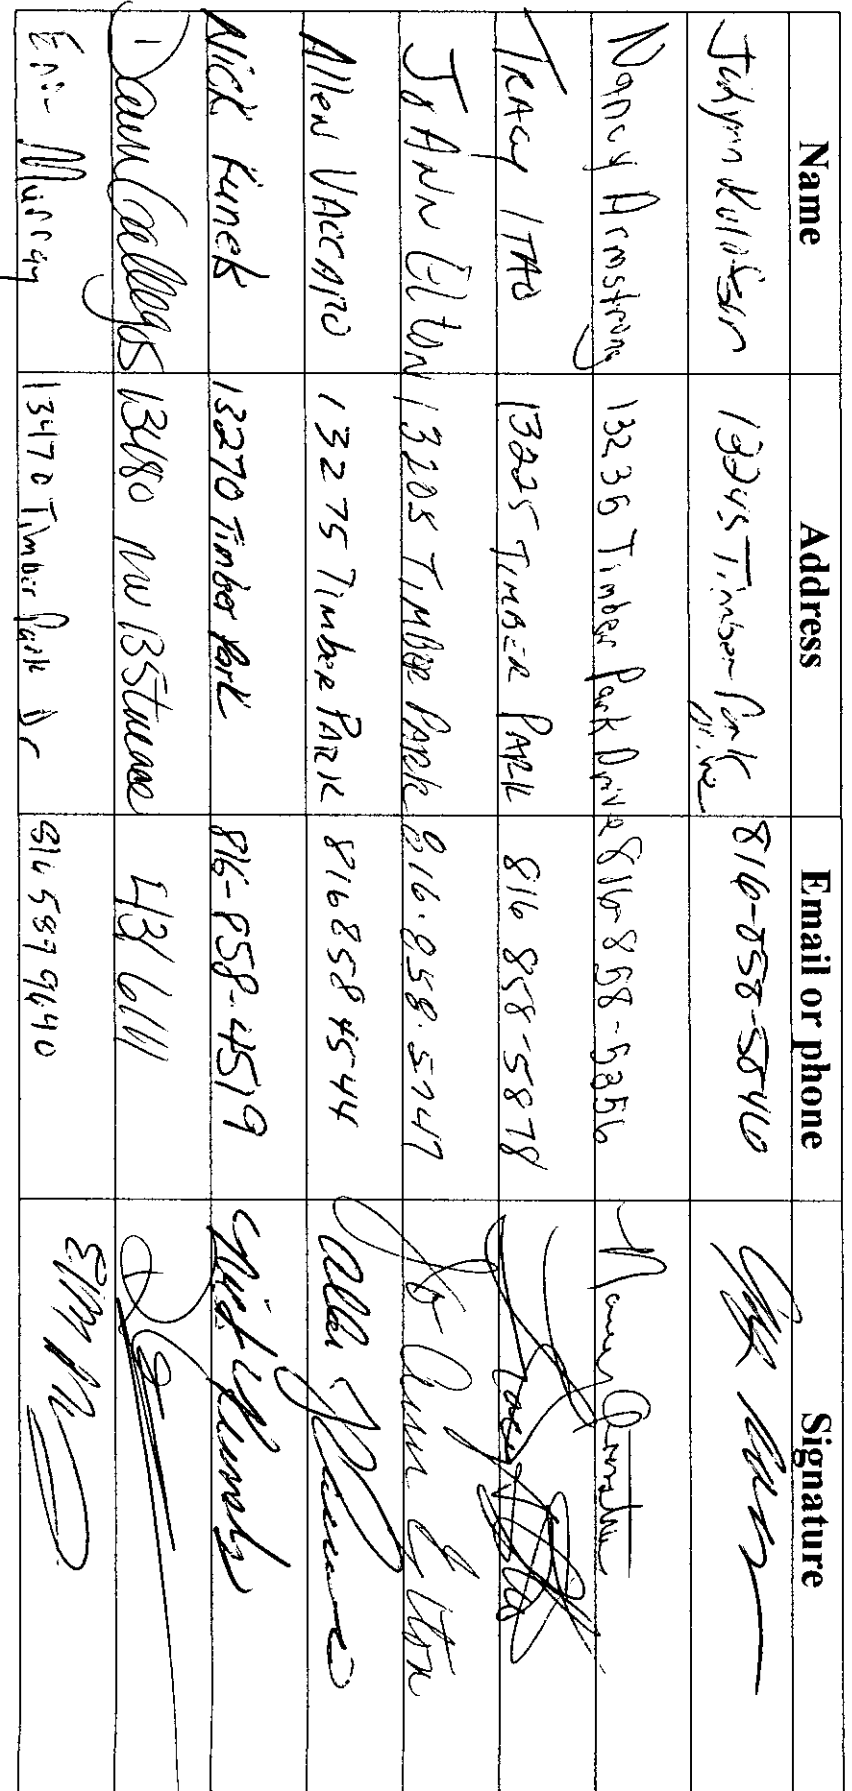 Name Address Email or phone Signature
13245 Timber Park Drive 816-858-5546
Nancy Armstrong 13236 Timber Park Drive 816-858-5356 Nancy Armstrong
TRACY ITAO 13225 TIMBER PARK 816 858-5878
Jo ANN Elton 13205 TIMBER PARK 816.858.5747 Jo Ann Elton
Allen VACCARO 13275 Timber PARK 816 858 4544
Nick Kunek 13270 Timber Park 816-858-4519
Dawn Gallegos 13480 NW 135
Erin Murray 13470 Timber Park Dr 816 589 9640